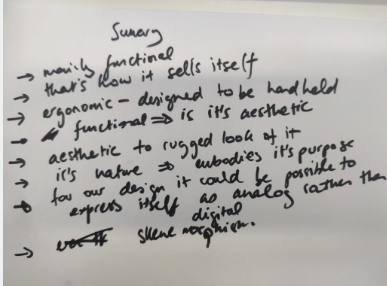 Sumary
→ mainly functional
→ that's how it sells itself
→ ergonomic – designed to be handheld
→ functional ⇒ is it's aesthetic
→ aesthetic to rugged look of it
→ it's nature ⇒ embodies it's purpose
→ for our design it could be possible to
express itself as analog rather then
digital
→ skeuomorphism.